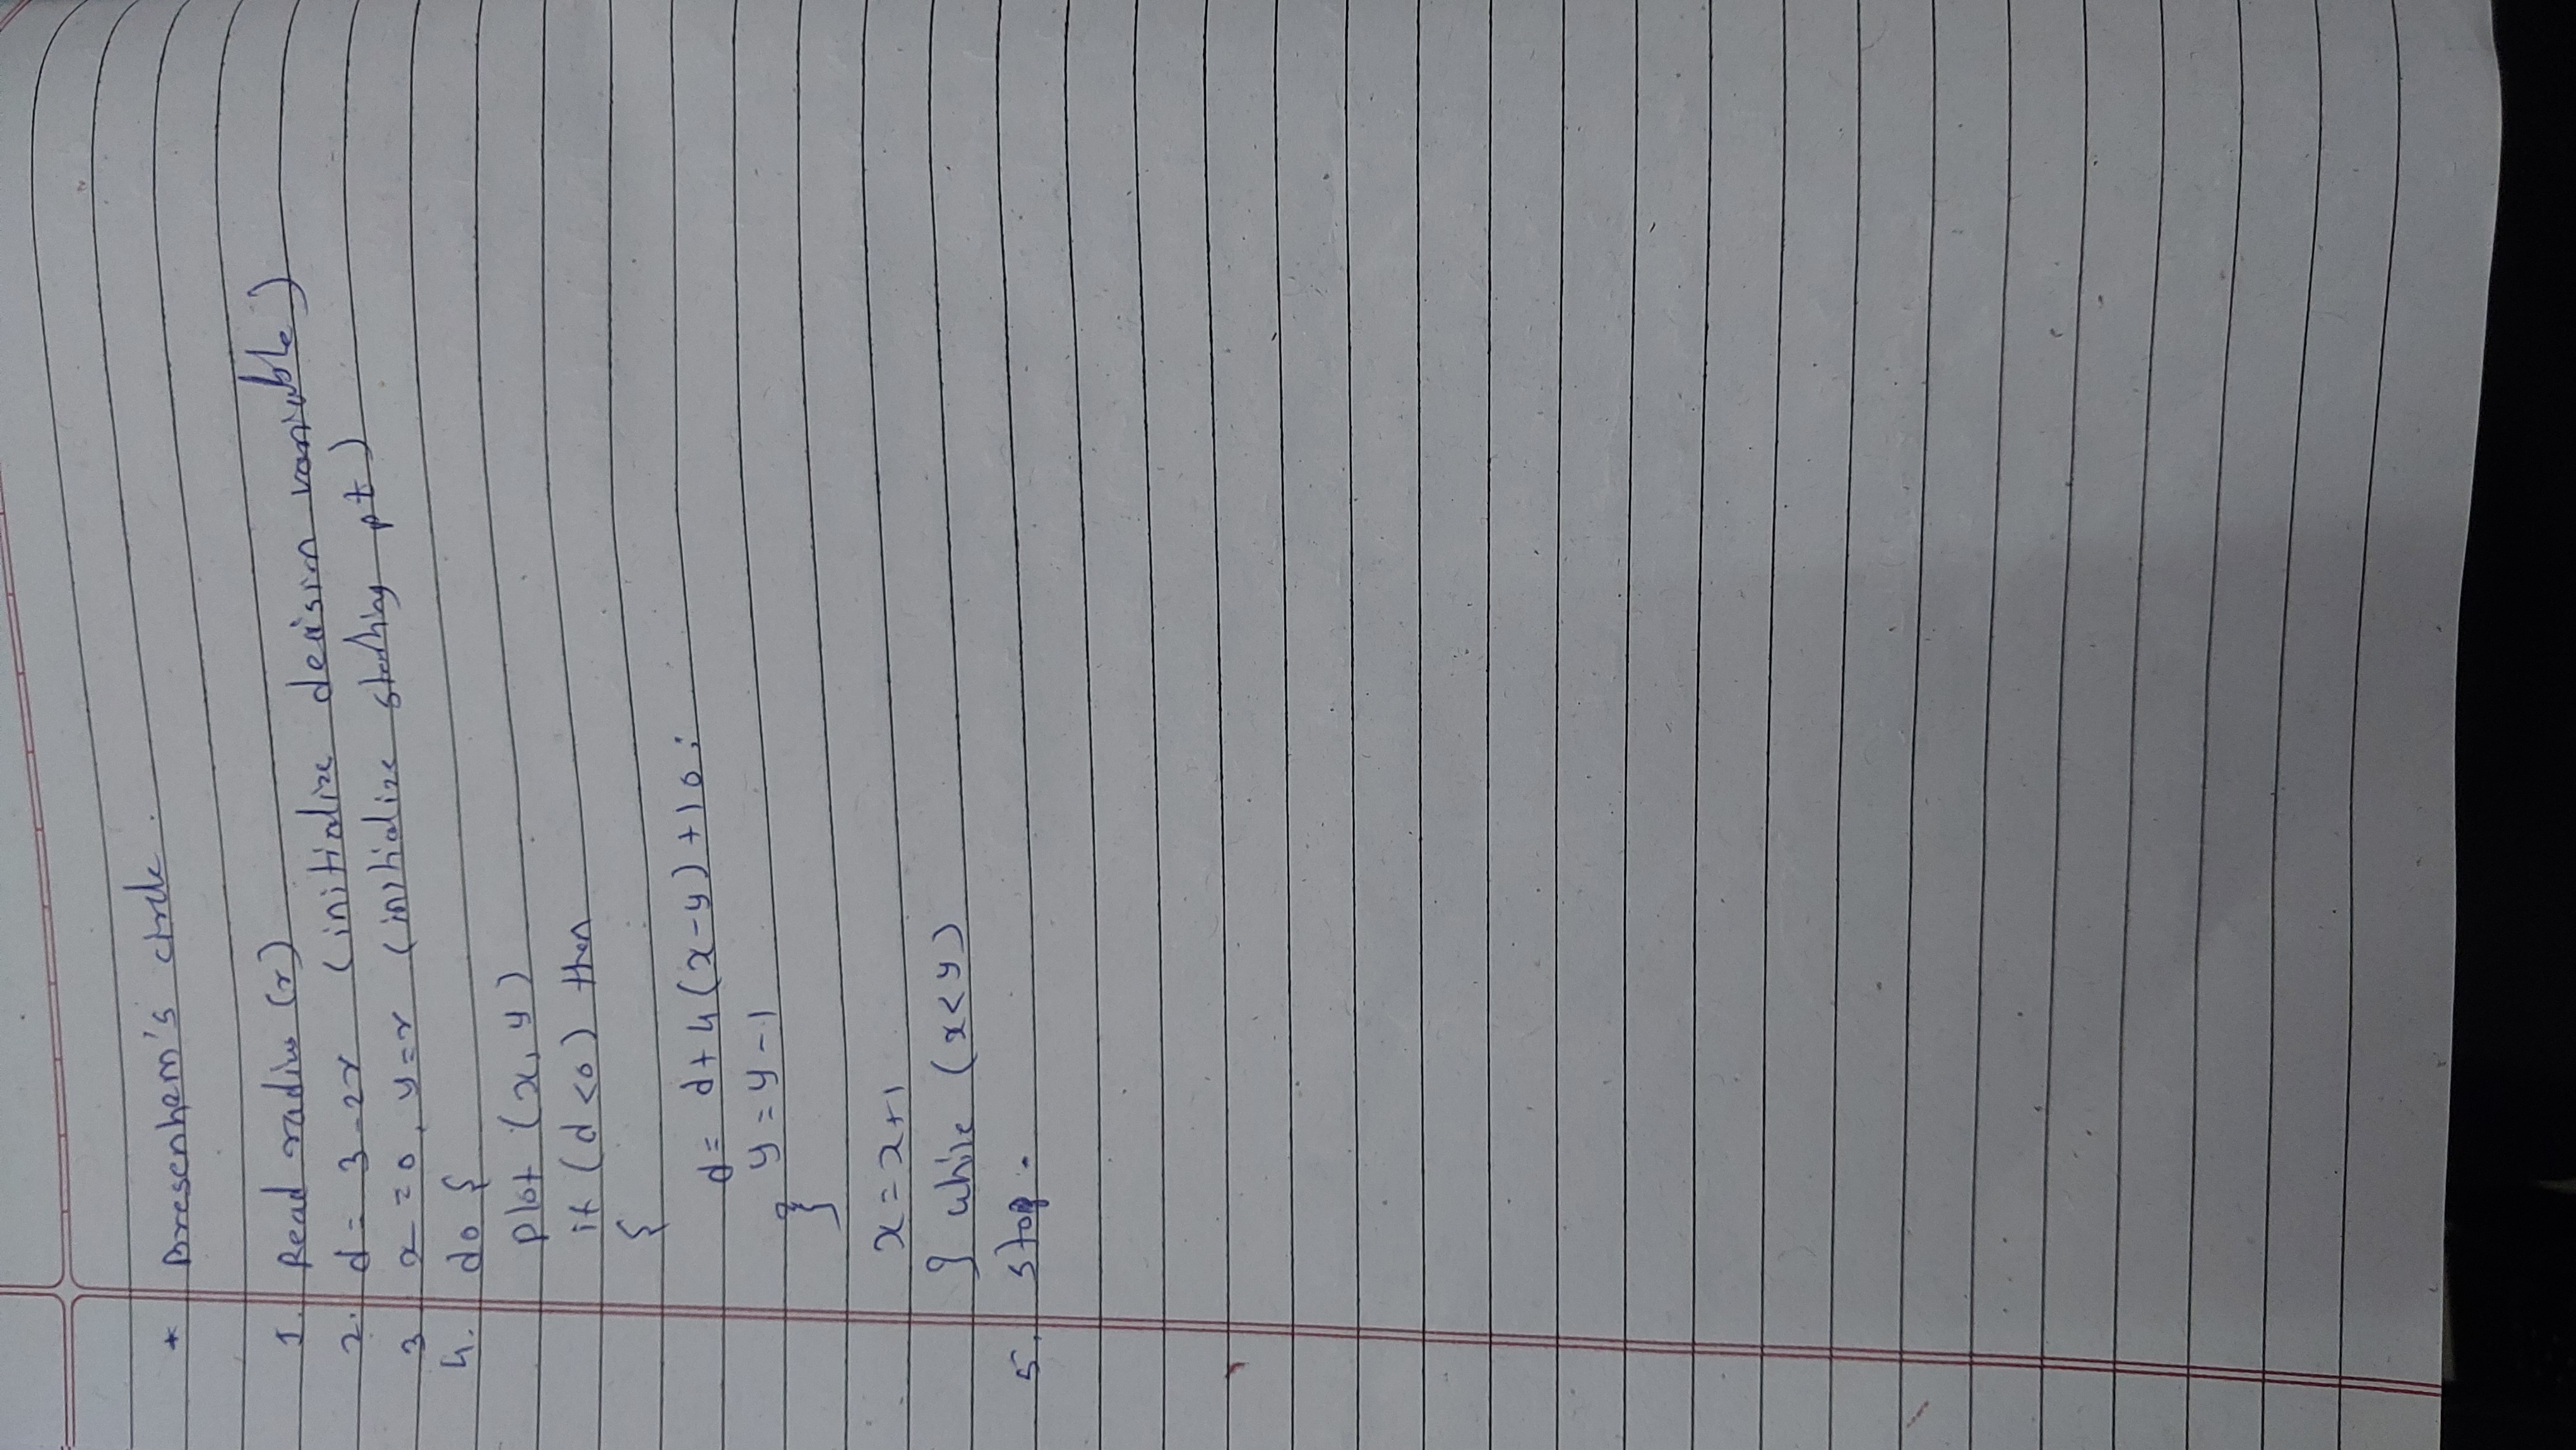 * Bresenham's circle.
1. Read radius (r)
2. d = 3 - 2r (initialize decision variable)
3 x = 0, y = r (initialize starting pt)
4. do {
plot (x, y)
if (d < 0) then
{
d = d + 4 (x - y) + 10;
y = y - 1
}
x = x + 1
} while (x < y)
5. stop.